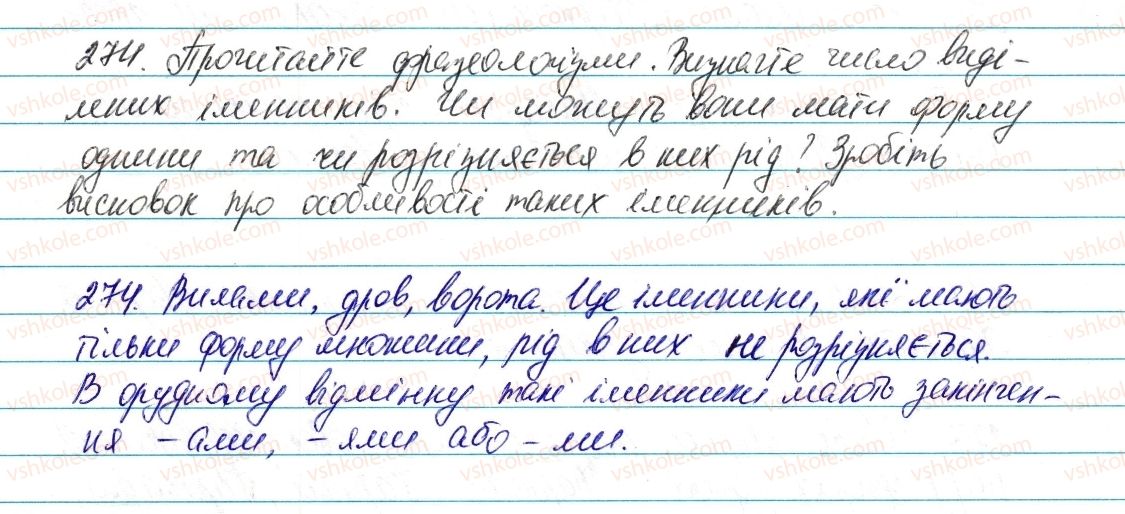 274. Прочитайте фразеологізми. Визначте число виді-
лених іменників. Чи можуть вони мати форму
однини та чи розрізняється в них рід? Зробіть
висновок про особливості таких іменників.
274. Вилами, дров, ворота. Це іменники, які мають
тільки форму множини, рід в них не розрізняється.
В орудному відмінку такі іменники мають закінчен-
ня -ами, -ями або -ми.
vshkole.com